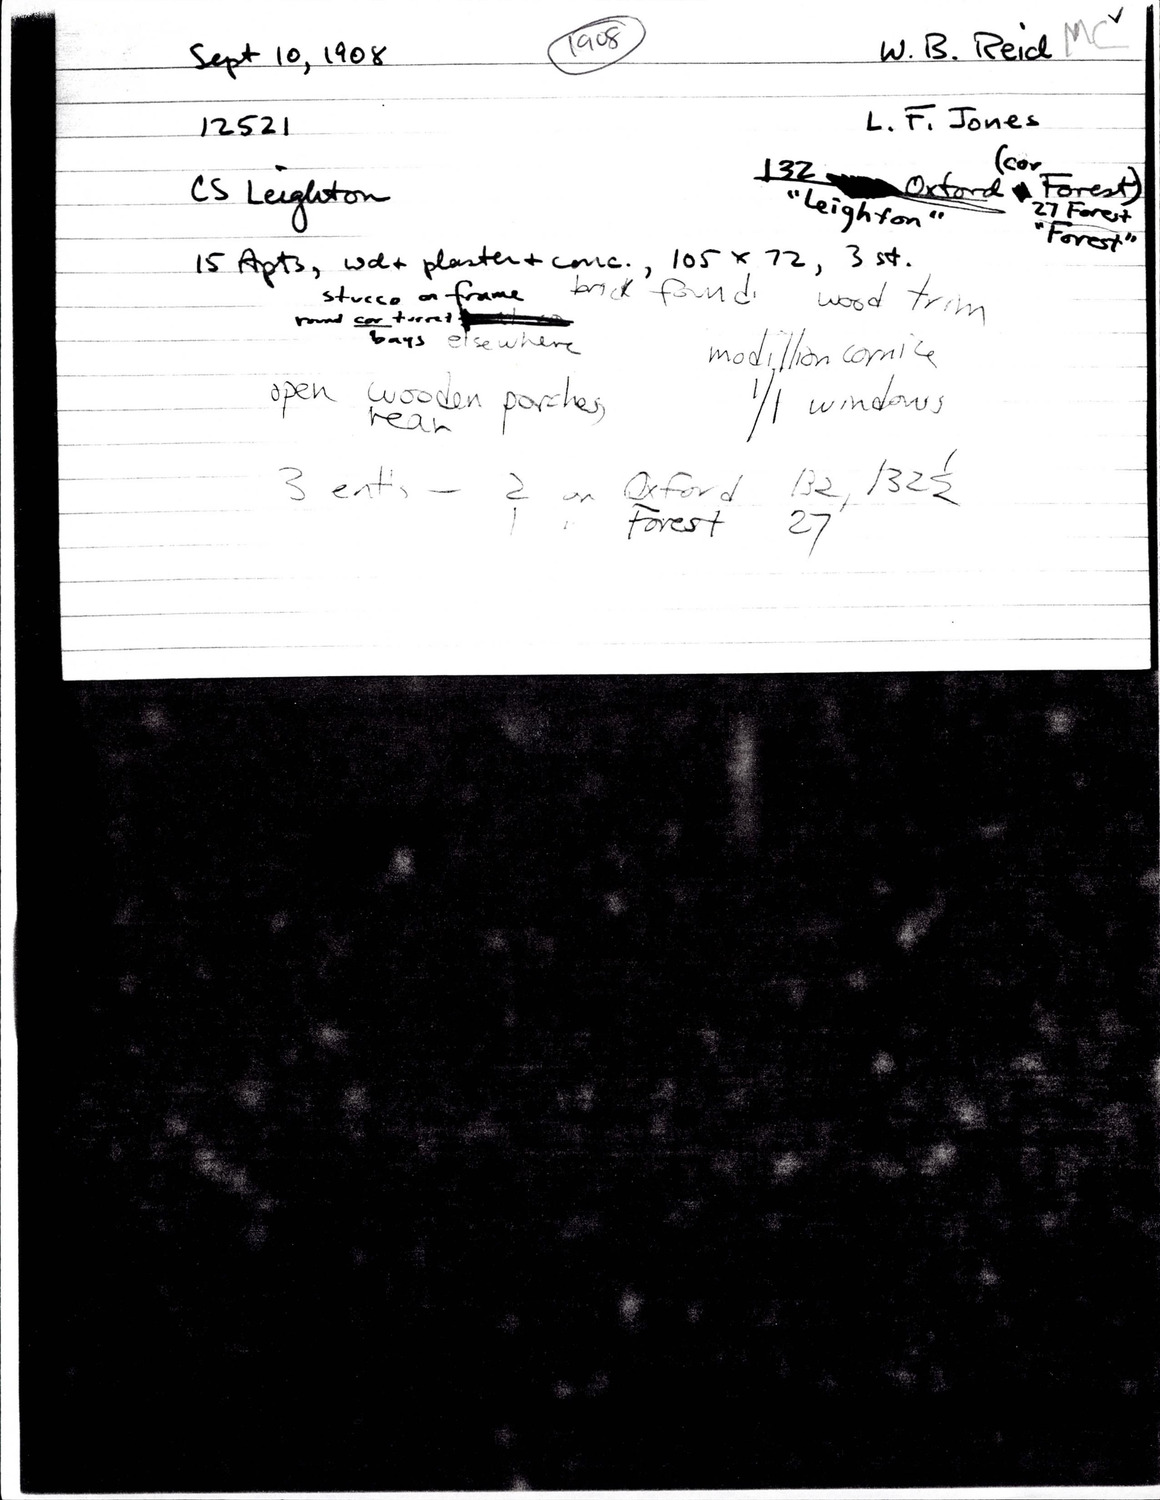 Sept 10, 1908 1908 W. B. Reid MC ✓
12521 L. F. Jones
CS Leighton 132 Oxford (cor Forest)
"Leighton" 27 Forest
"Forest"
15 Apts, wd + plaster + conc., 105 x 72, 3 st.
stucco on frame brick found. wood trim
round cor turret
bays elsewhere modillion cornice
open wooden porches, 1/1 windows
rear
3 ents – 2 on Oxford 132, 132½
1 " Forest 27